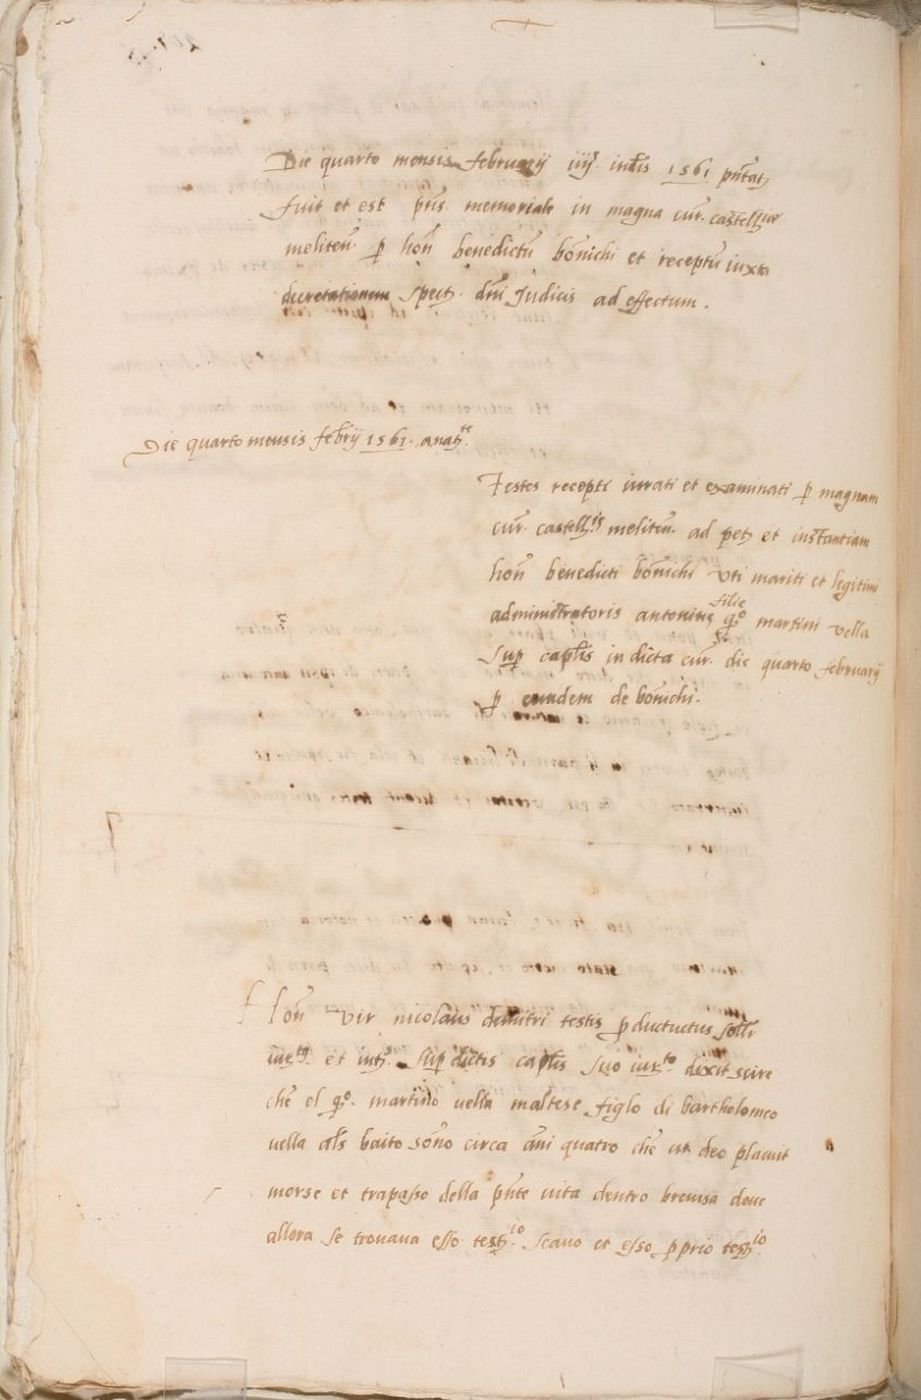 Die quarto mensis februarij iiij indis 1561 pntatȝ
fuit et est pns memoriale in magna cur. castellaniæ
meliten. p hon benedictu bonichi et receptu iuxta
decretationem spectȝ. dni Judicis ad effectum.
Die quarto mensis febrij 1561. anatȝ te
Testes recepti iurati et examinati p magnam
cur. castell is meliten. ad petȝ et instantiam
hon benedicti bonichi uti mariti et legitimi
filie
administratoris antonine qo martini vella
sup caplis in dicta cur. die quarto februarij
p eundem de bonichi.
Hon vir nicolaus dimitri testis pductuctus
et intȝ. sup dictis caplis suo iurto dixit scire
che el qo. martino vella maltese figlo di bartholomeo
vella als baito sono circa ani quatro che ut deo placuit
morse et trapasso della pnte vita dentro dove
allora se trovava esso testio. scavo et esso pprio testio.